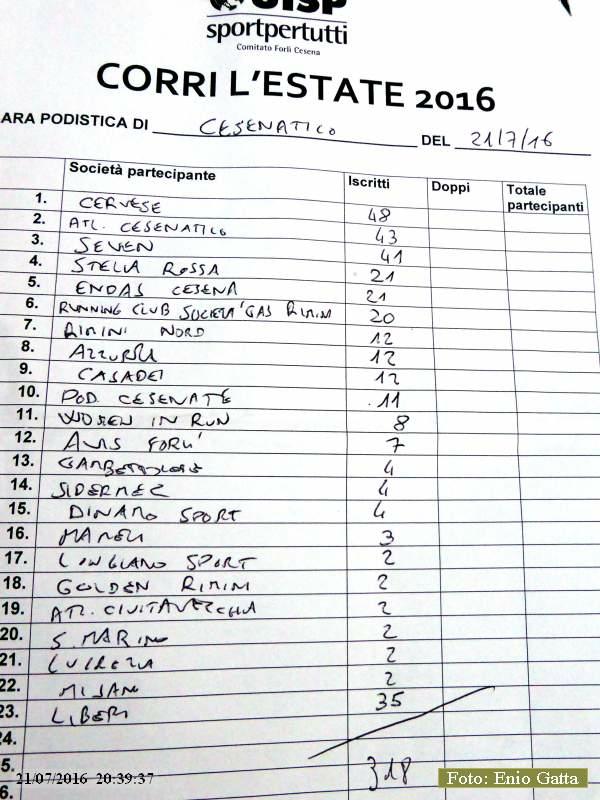 UISP
sportpertutti
Comitato Forlì Cesena
CORRI L'ESTATE 2016
ARA PODISTICA DI CESENATICO DEL 21/7/16
Società partecipante Iscritti Doppi Totale partecipanti
1. CERVESE 48
2. ATL. CESENATICO 43
3. SEVEN 41
4. STELLA ROSSA 21
5. ENDAS CESENA 21
6. RUNNING CLUB SOCIETA' GAS RIMINI 20
7. RIMINI NORD 12
8. AZZURRA 12
9. CASADEI 12
10. POD. CESENATE 11
11. WOMEN IN RUN 8
12. AVIS FORLI' 7
13. GAMBETTOLESE 4
14. SIDERMEC 4
15. DINAMO SPORT 4
16. 3
17. LONGIANO SPORT 2
18. GOLDEN RIMINI 2
19. ATL. CIVITAVECCHIA 2
20. S. MARINO 2
21. 2
22. MISANO 2
23. LIBERI 35
24.
5. 318
6.
21/07/2016 20:39:37
Foto: Enio Gatta